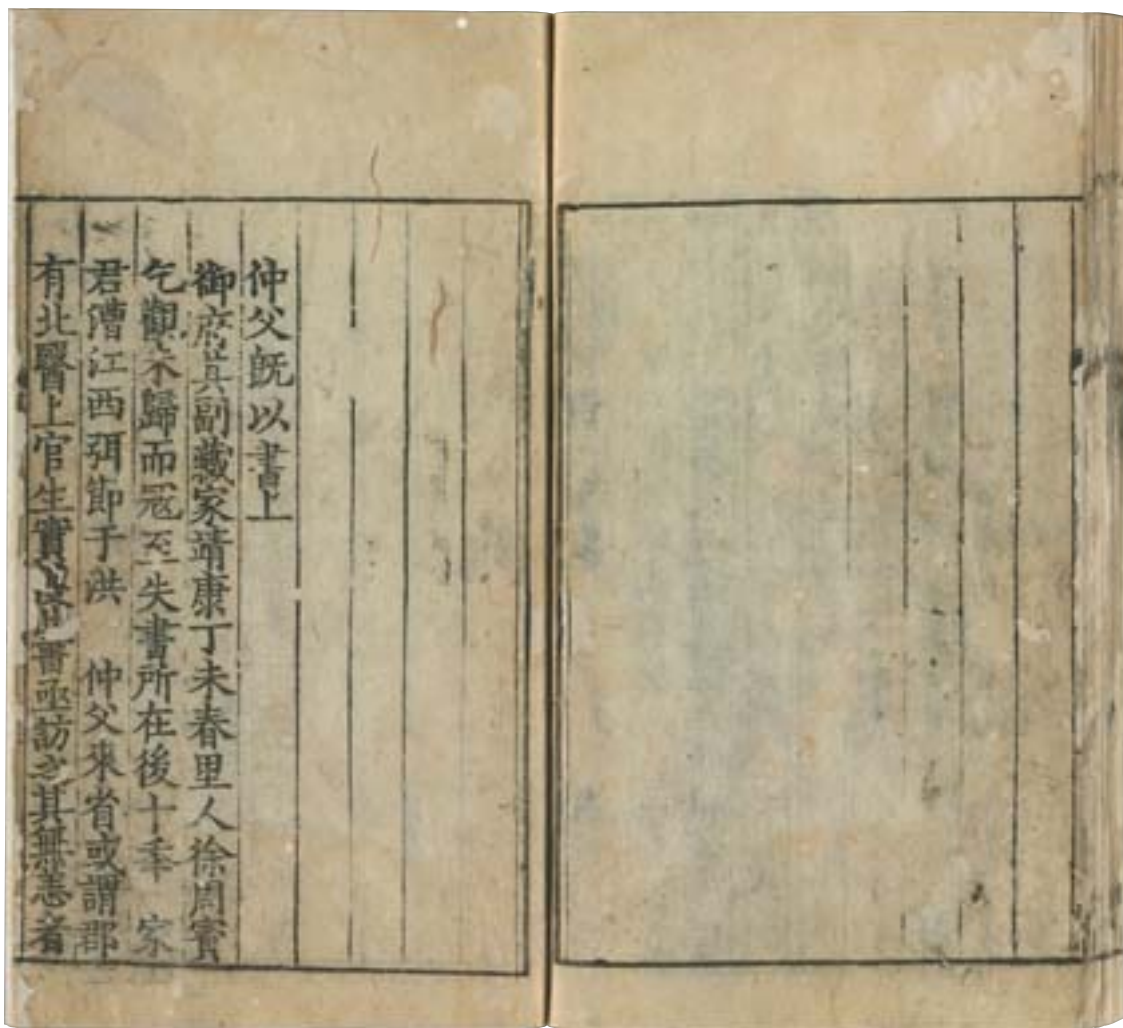 仲父旣以書上
御府其副藏家靖康丁未春里人徐周賓
乞觀未歸而冦至失書所在後十秊 家
君漕江西弭節于洪 仲父來省或謂郡
有北醫上官生實獲此書亟訪之其無恙者